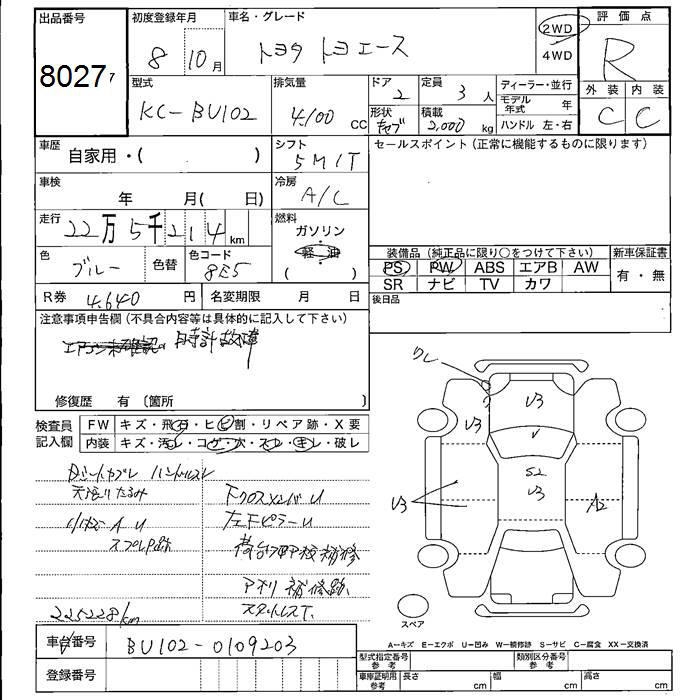 出品番号 初度登録年月 車名・グレード 2WD 4WD 評価点
80277 8 10月 トヨタ トヨエース R
型式 排気量 ドア 定員 ディーラー・並行 外装 内装
KC-BU102 4,100 CC 2 3人 モデル年式 年 C C
形状 積載 ハンドル 左・右
キャブ 2,000 kg
車歴 自家用・( ) シフト 5MIT セールスポイント(正常に機能するものに限ります)
車検 年 月( 日) 冷房 A/C
走行 22万5千214km 燃料 ガソリン 軽油 ( )
色 ブルー 色替 色コード 8E5
装備品(純正品に限り○をつけて下さい) 新車保証書
PS PW ABS エアB AW 有・無
SR ナビ TV カワ
R券 4,640円 名変期限 月 日 後日品
注意事項申告欄(不具合内容等は具体的に記入して下さい)
エアコン未確認。時計故障
修復歴 有(箇所 )
検査員記入欄 FW キズ・飛石・ヒビ割・リペア跡・X要
内装 キズ・汚レ・コゲ・穴・スレ・キレ・破レ
ハンドルスレ
天張りたるみ
下クロスメンバU
A U
左FピラーU
荷台フロア板補修
アオリ補修跡
スタットレスT.
225228km
ワレ
U3
U3
U3
S2
U3
A2
スペア
A=キズ E=エクボ U=凹み W=補修跡 S=サビ C=腐食 XX=交換済
車台番号 BU102-0109203
登録番号
型式指定番号 参考 類別区分番号 参考
車庫証明用 参考 長さ cm 幅 cm 高さ cm